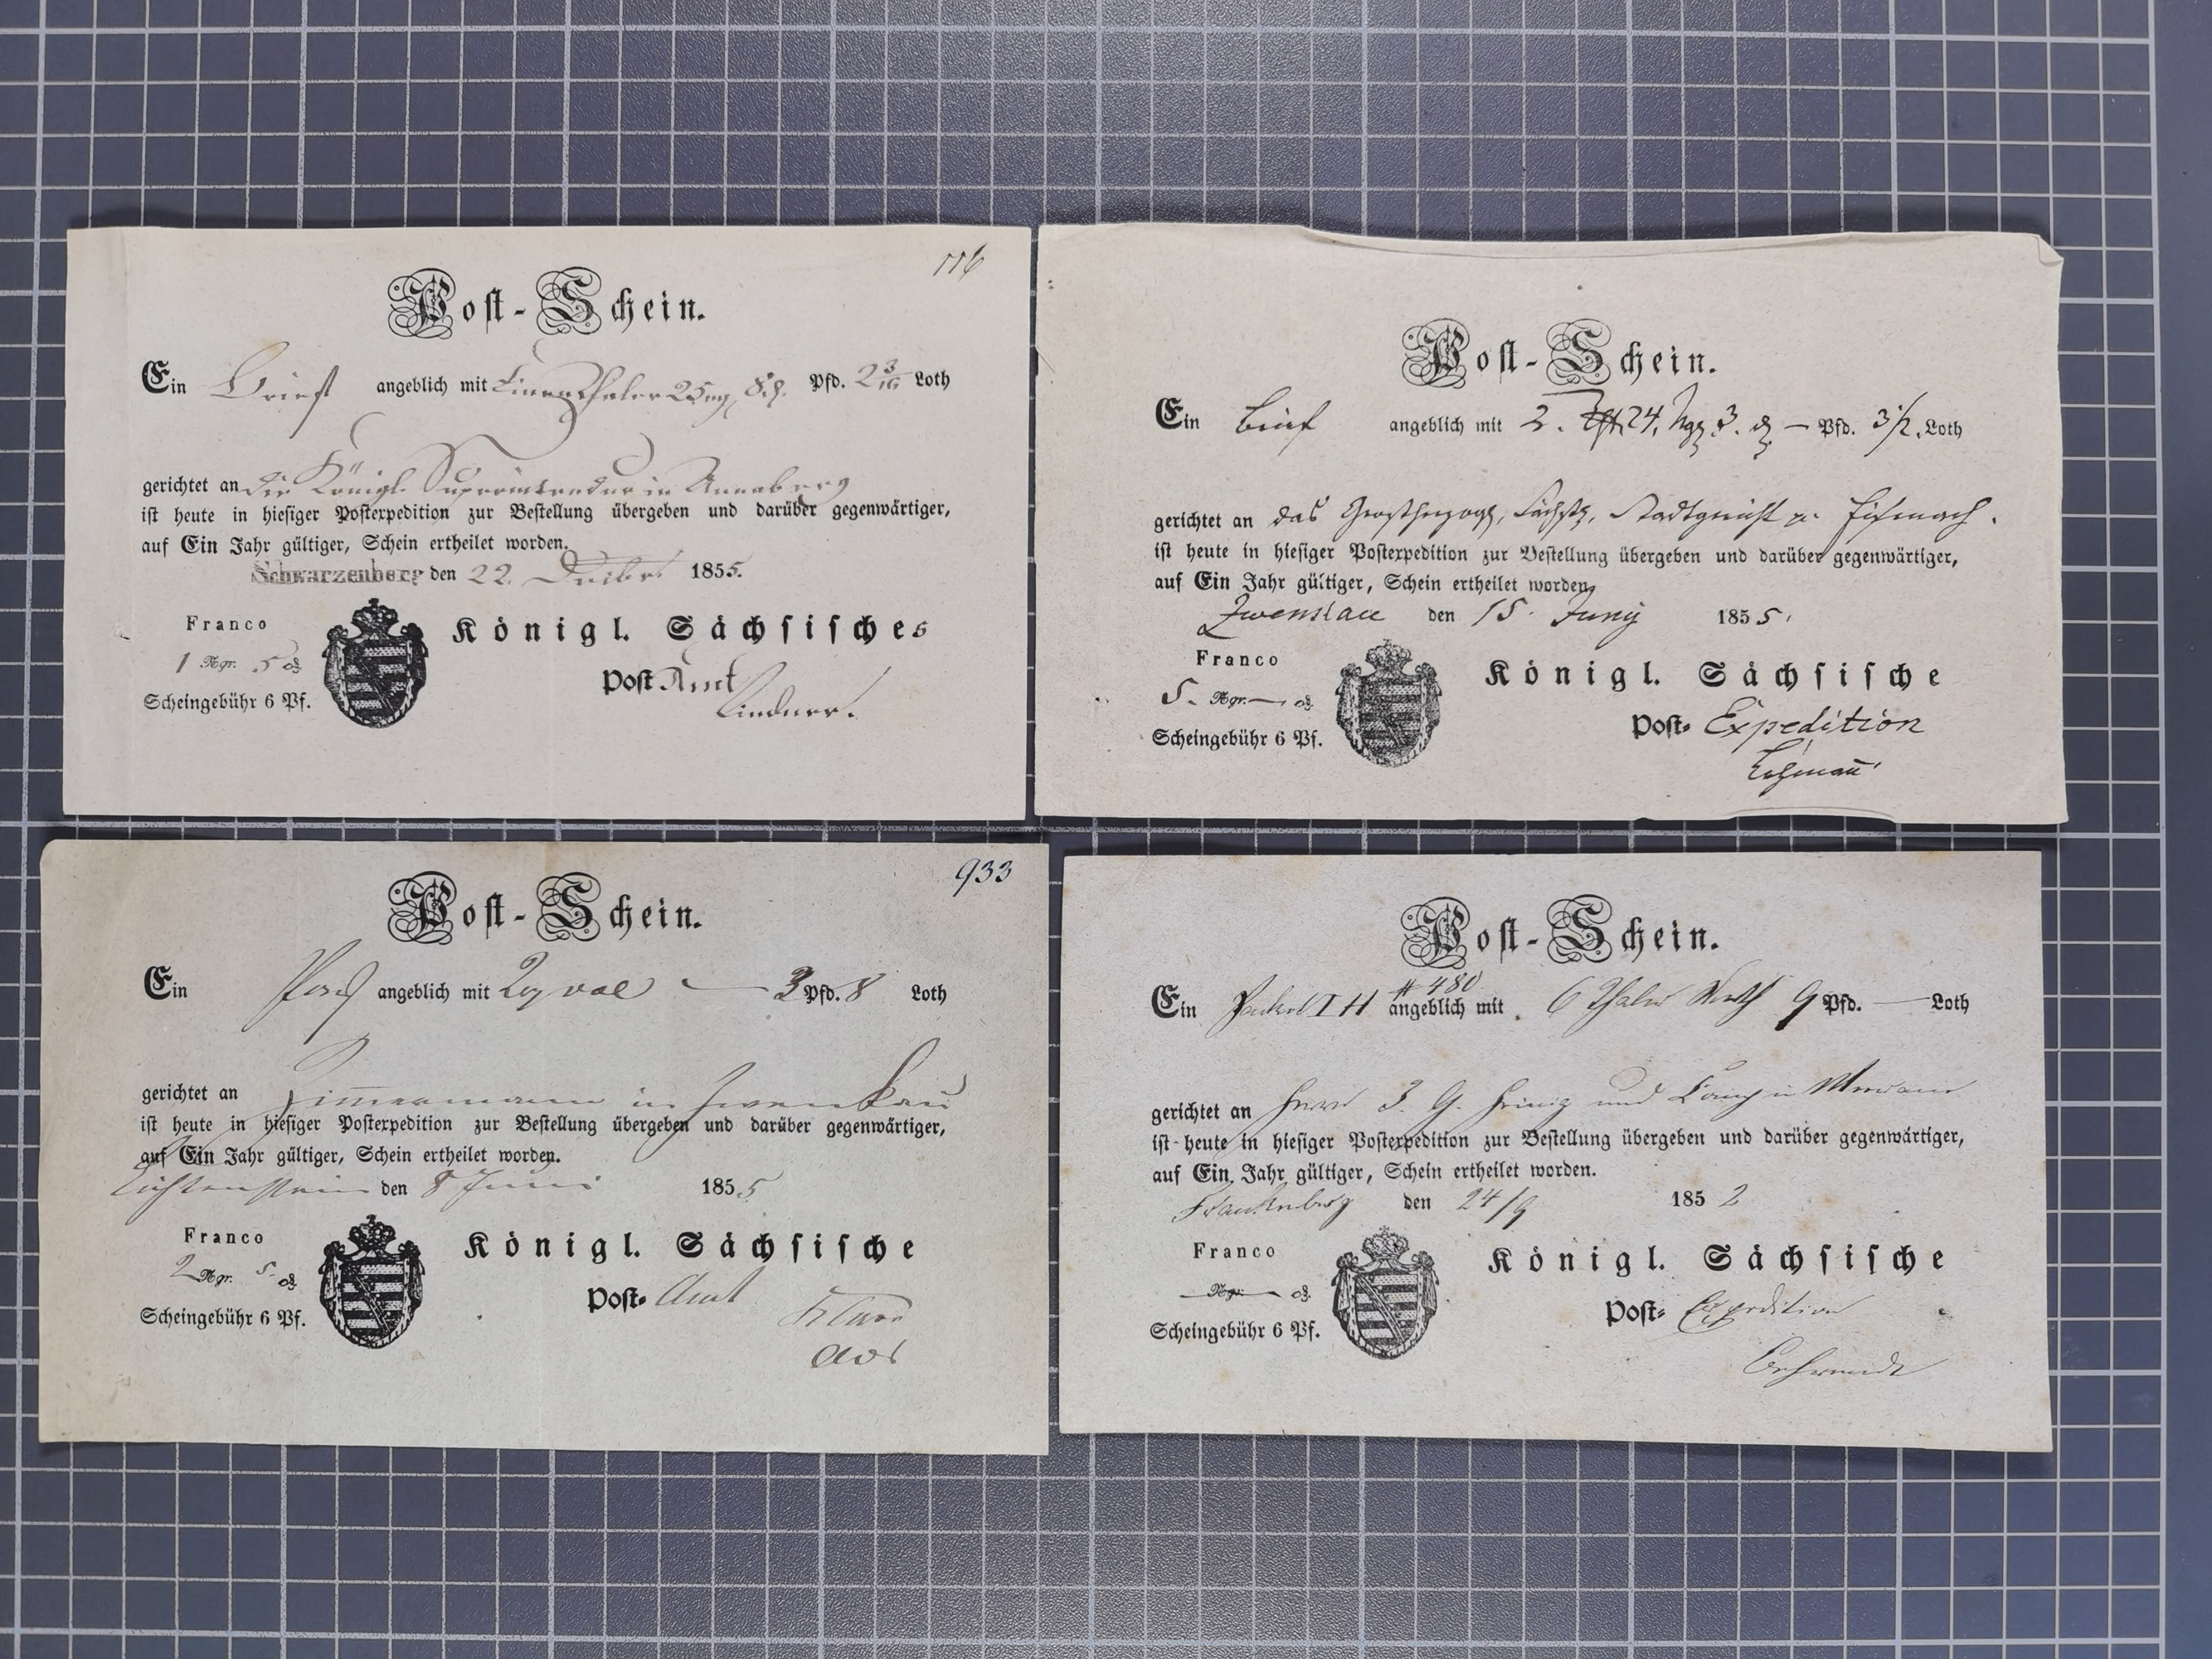 116
Post-Schein.
Ein Brief angeblich mit Einen Thaler 25 ngr 8 ₰. Pfd. 2 3/16 Loth
gerichtet an die Königl. Superintendur in Annaberg
ist heute in hiesiger Postexpedition zur Bestellung übergeben und darüber gegenwärtiger,
auf Ein Jahr gültiger, Schein ertheilet worden.
Schwarzenberg den 22. 1855.
Franco
1 Ngr. 5 ₰
Scheingebühr 6 Pf.
Königl. Sächsisches
Post Amt
Lindner.
Post-Schein.
Ein Brief angeblich mit 2. 24. Ngr. 3. ₰ — Pfd. 3 1/2. Loth
gerichtet an das Großherzogl. Sächs. Stadtgericht zu Eisenach.
ist heute in hiesiger Postexpedition zur Bestellung übergeben und darüber gegenwärtiger,
auf Ein Jahr gültiger, Schein ertheilet worden,
Zwenkau den 15. Juny 1855.
Franco
5. Ngr. — ₰
Scheingebühr 6 Pf.
Königl. Sächsische
Post- Expedition
933
Post-Schein.
Ein angeblich mit — 3 Pfd. 8 Loth
gerichtet an Zimmermann in Zwenkau
ist heute in hiesiger Postexpedition zur Bestellung übergeben und darüber gegenwärtiger,
auf Ein Jahr gültiger, Schein ertheilet worden.
Lichtenstein den 8 Juni 1855
Franco
2 Ngr. 5 ₰
Scheingebühr 6 Pf.
Königl. Sächsische
Post- Amt
Post-Schein.
# 480
Ein angeblich mit 6 Thaler Werth 9 Pfd. — Loth
gerichtet an Herrn und Comp in Meerane
ist heute in hiesiger Postexpedition zur Bestellung übergeben und darüber gegenwärtiger,
auf Ein Jahr gültiger, Schein ertheilet worden.
Frankenberg den 24/9 1852
Franco
— Ngr. — ₰
Scheingebühr 6 Pf.
Königl. Sächsische
Post- Expedition
Behrendt